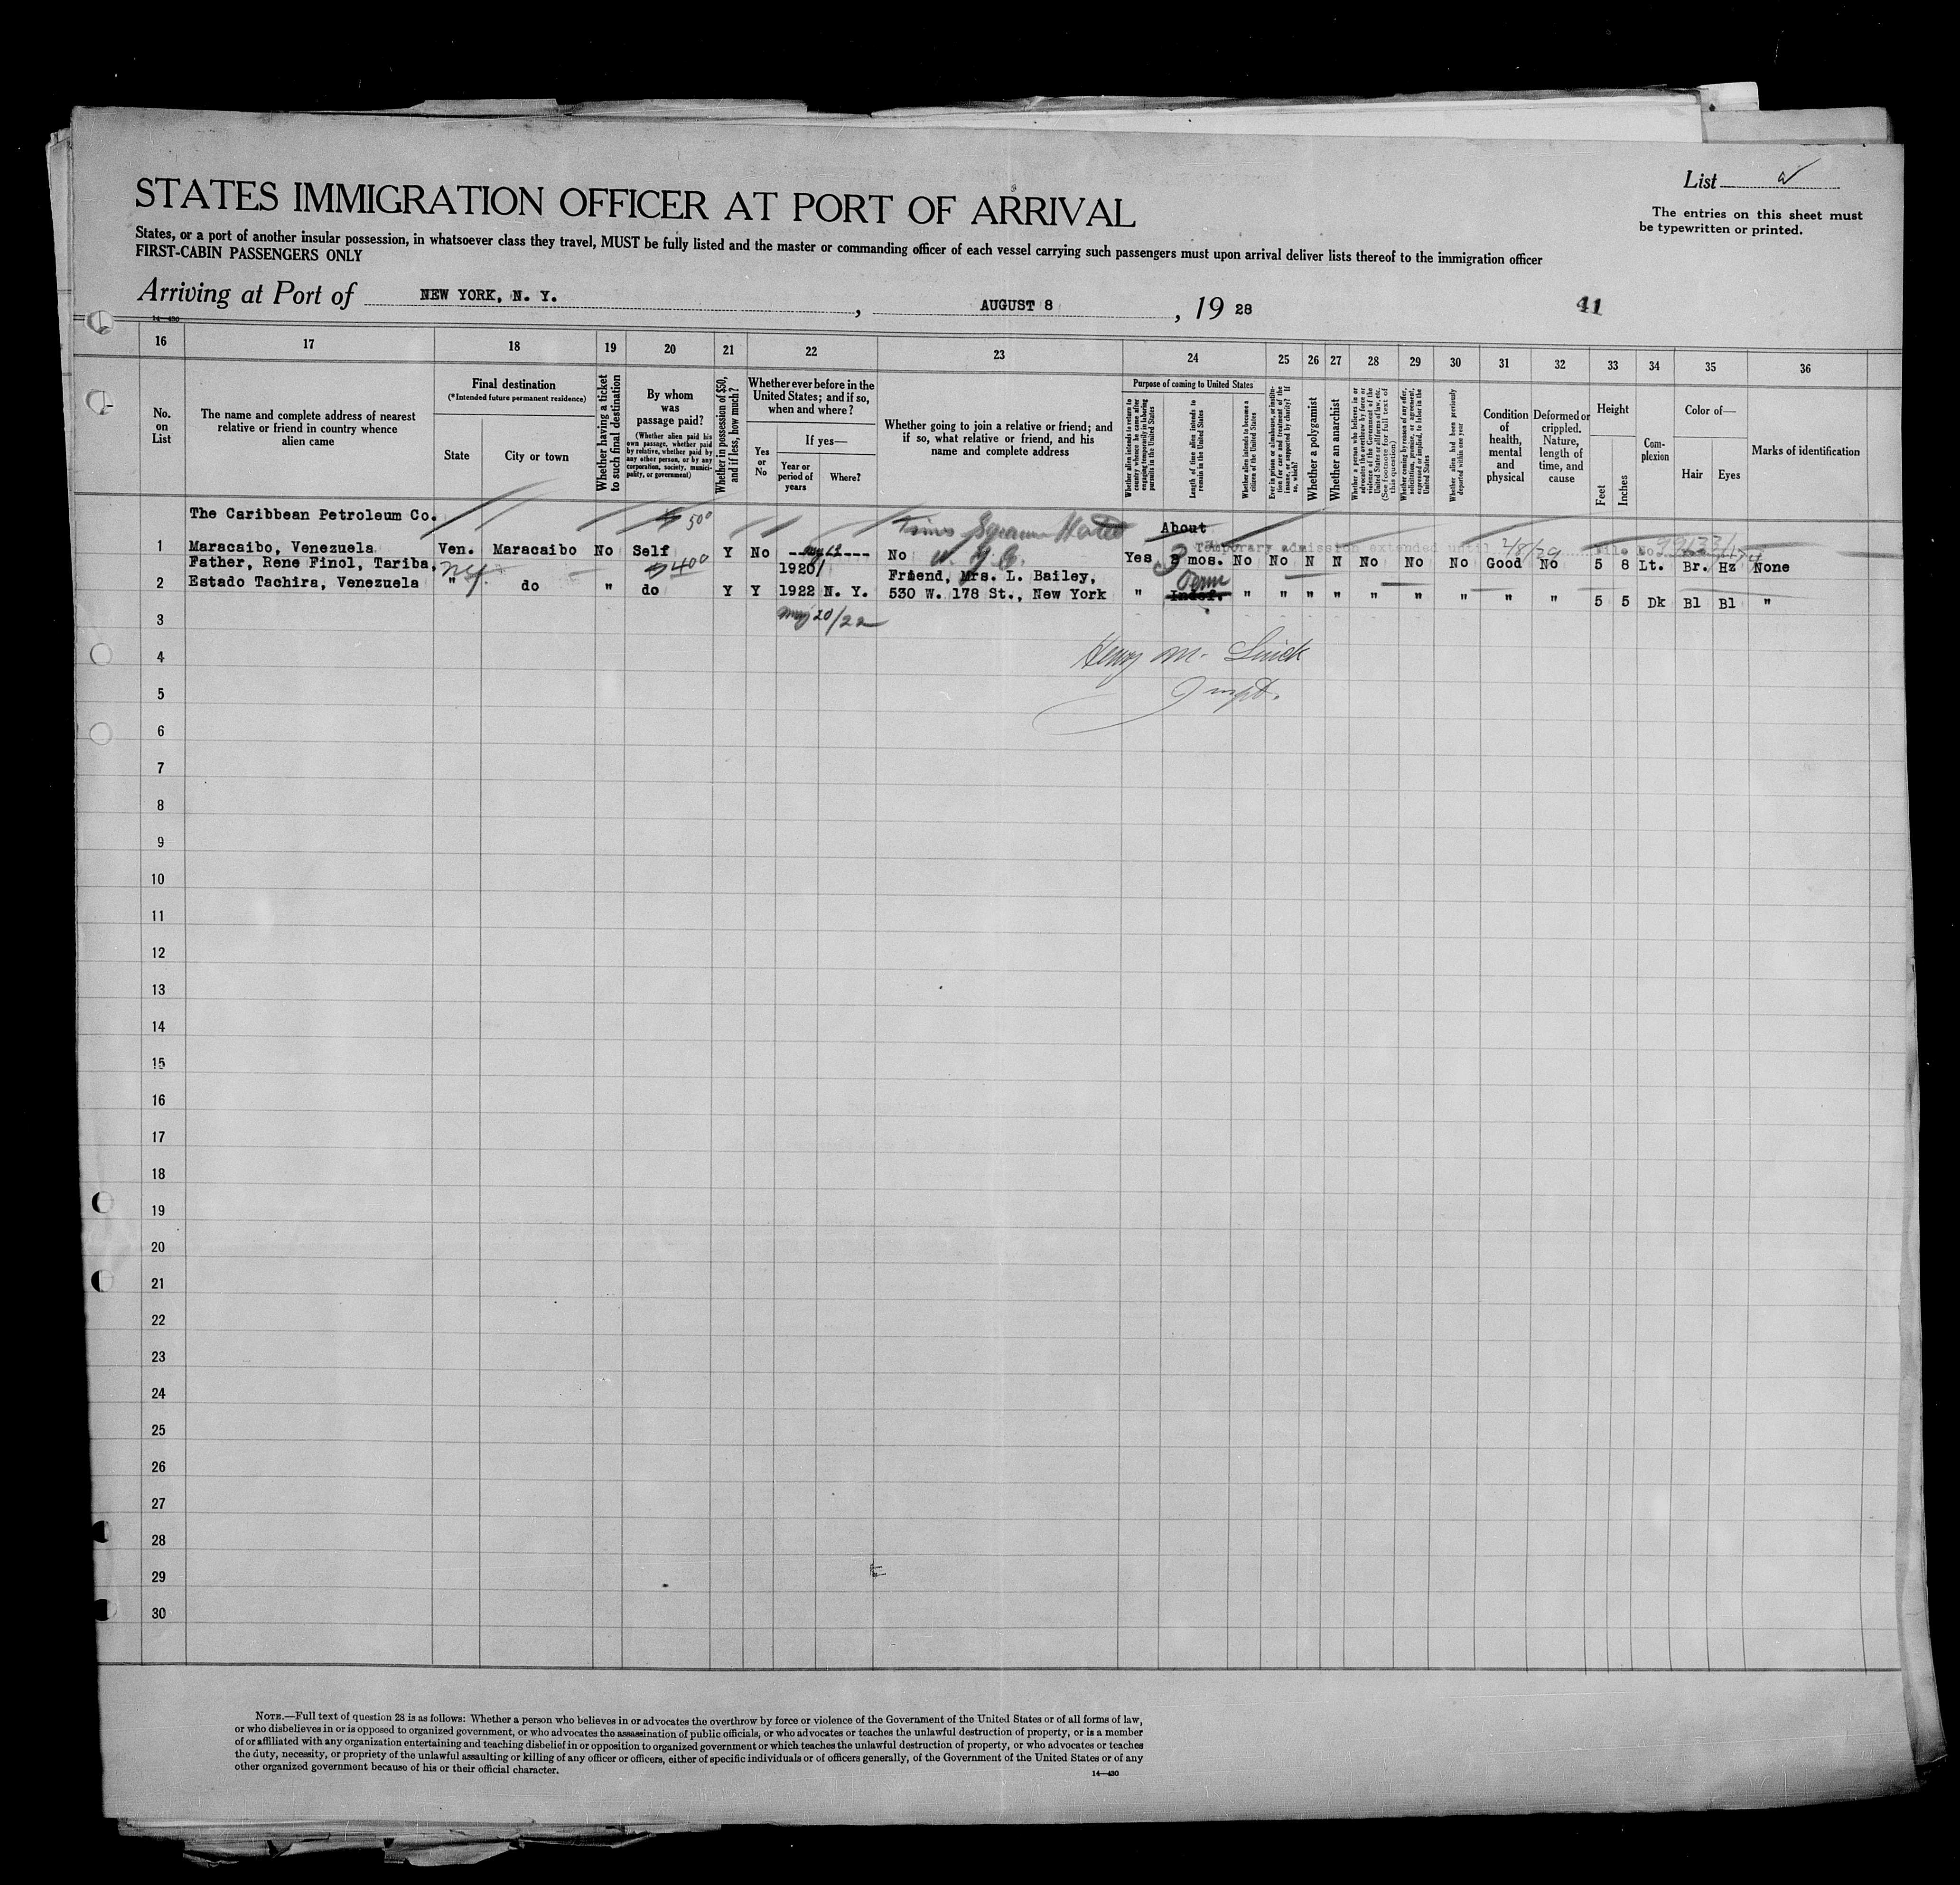 List
The entries on this sheet must
be typewritten or printed.
STATES IMMIGRATION OFFICER AT PORT OF ARRIVAL
States, or a port of another insular possession, in whatsoever class they travel, MUST be fully listed and the master or commanding officer of each vessel carrying such passengers must upon arrival deliver lists thereof to the immigration officer
FIRST-CABIN PASSENGERS ONLY
Arriving at Port of NEW YORK, N. Y., AUGUST 8, 19 28
41
14—430
16 17 18 19 20 21 22 23 24 25 26 27 28 29 30 31 32 33 34 35 36
No.
on
List
The name and complete address of nearest
relative or friend in country whence
alien came
Final destination
(*Intended future permanent residence)
State
City or town
Whether having a ticket
to such final destination
By whom
was
passage paid?
(Whether alien paid his
own passage, whether paid
by relative, whether paid by
any other person, or by any
corporation, society, munici-
pality, or government)
Whether in possession of $50,
and if less, how much?
Whether ever before in the
United States; and if so,
when and where?
Yes
or
No
If yes—
Year or
period of
years
Where?
Whether going to join a relative or friend; and
if so, what relative or friend, and his
name and complete address
Purpose of coming to United States
Whether alien intends to return to
country whence he came after
engaging temporarily in laboring
pursuits in the United States
Length of time alien intends to
remain in the United States
Whether alien intends to become a
citizen of the United States
Ever in prison or almshouse, or institu-
tion for care and treatment of the
insane, or supported by charity? If
so, which?
Whether a polygamist
Whether an anarchist
Whether a person who believes in or
advocates the overthrow by force or
violence of the Government of the
United States or all forms of law, etc.
(See footnote for full text of
this question)
Whether coming by reason of any offer,
solicitation, promise, or agreement,
expressed or implied, to labor in the
United States
Whether alien had been previously
deported within one year
Condition
of
health,
mental
and
physical
Deformed or
crippled.
Nature,
length of
time, and
cause
Height
Feet
Inches
Com-
plexion
Color of—
Hair
Eyes
Marks of identification
The Caribbean Petroleum Co.
500
Hotel
About
Temporary admission extended until 2/8/29 File No.
1 Maracaibo, Venezuela Ven. Maracaibo No Self Y No ---- No N. Y. C. Yes 3 mos. No No N N No No No Good No 5 8 Lt. Br. Hz None
Father, Rene Finol, Tariba, 400 1920/ Friend, Mrs. L. Bailey, Perm
2 Estado Tachira, Venezuela " do " do Y Y 1922 N. Y. 530 W. 178 St., New York " Indef. " " " " " " " " " 5 5 Dk Bl Bl "
20/22
3
4
Henry M.
5
Inspt.
6
7
8
9
10
11
12
13
14
15
16
17
18
19
20
21
22
23
24
25
26
27
28
29
30
NOTE.—Full text of question 28 is as follows: Whether a person who believes in or advocates the overthrow by force or violence of the Government of the United States or of all forms of law,
or who disbelieves in or is opposed to organized government, or who advocates the assassination of public officials, or who advocates or teaches the unlawful destruction of property, or is a member
of or affiliated with any organization entertaining and teaching disbelief in or opposition to organized government or which teaches the unlawful destruction of property, or who advocates or teaches
the duty, necessity, or propriety of the unlawful assaulting or killing of any officer or officers, either of specific individuals or of officers generally, of the Government of the United States or of any
other organized government because of his or their official character.
14—430